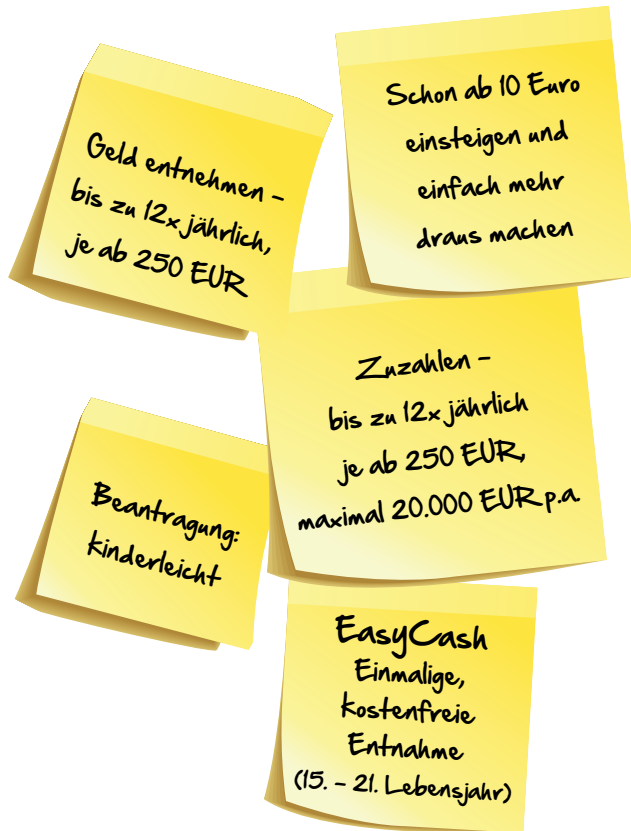 Geld entnehmen –
bis zu 12x jährlich,
je ab 250 EUR
Schon ab 10 Euro
einsteigen und
einfach mehr
draus machen
Zuzahlen –
bis zu 12x jährlich
je ab 250 EUR,
maximal 20.000 EUR p.a.
Beantragung:
kinderleicht
EasyCash
Einmalige,
kostenfreie
Entnahme
(15. – 21. Lebensjahr)